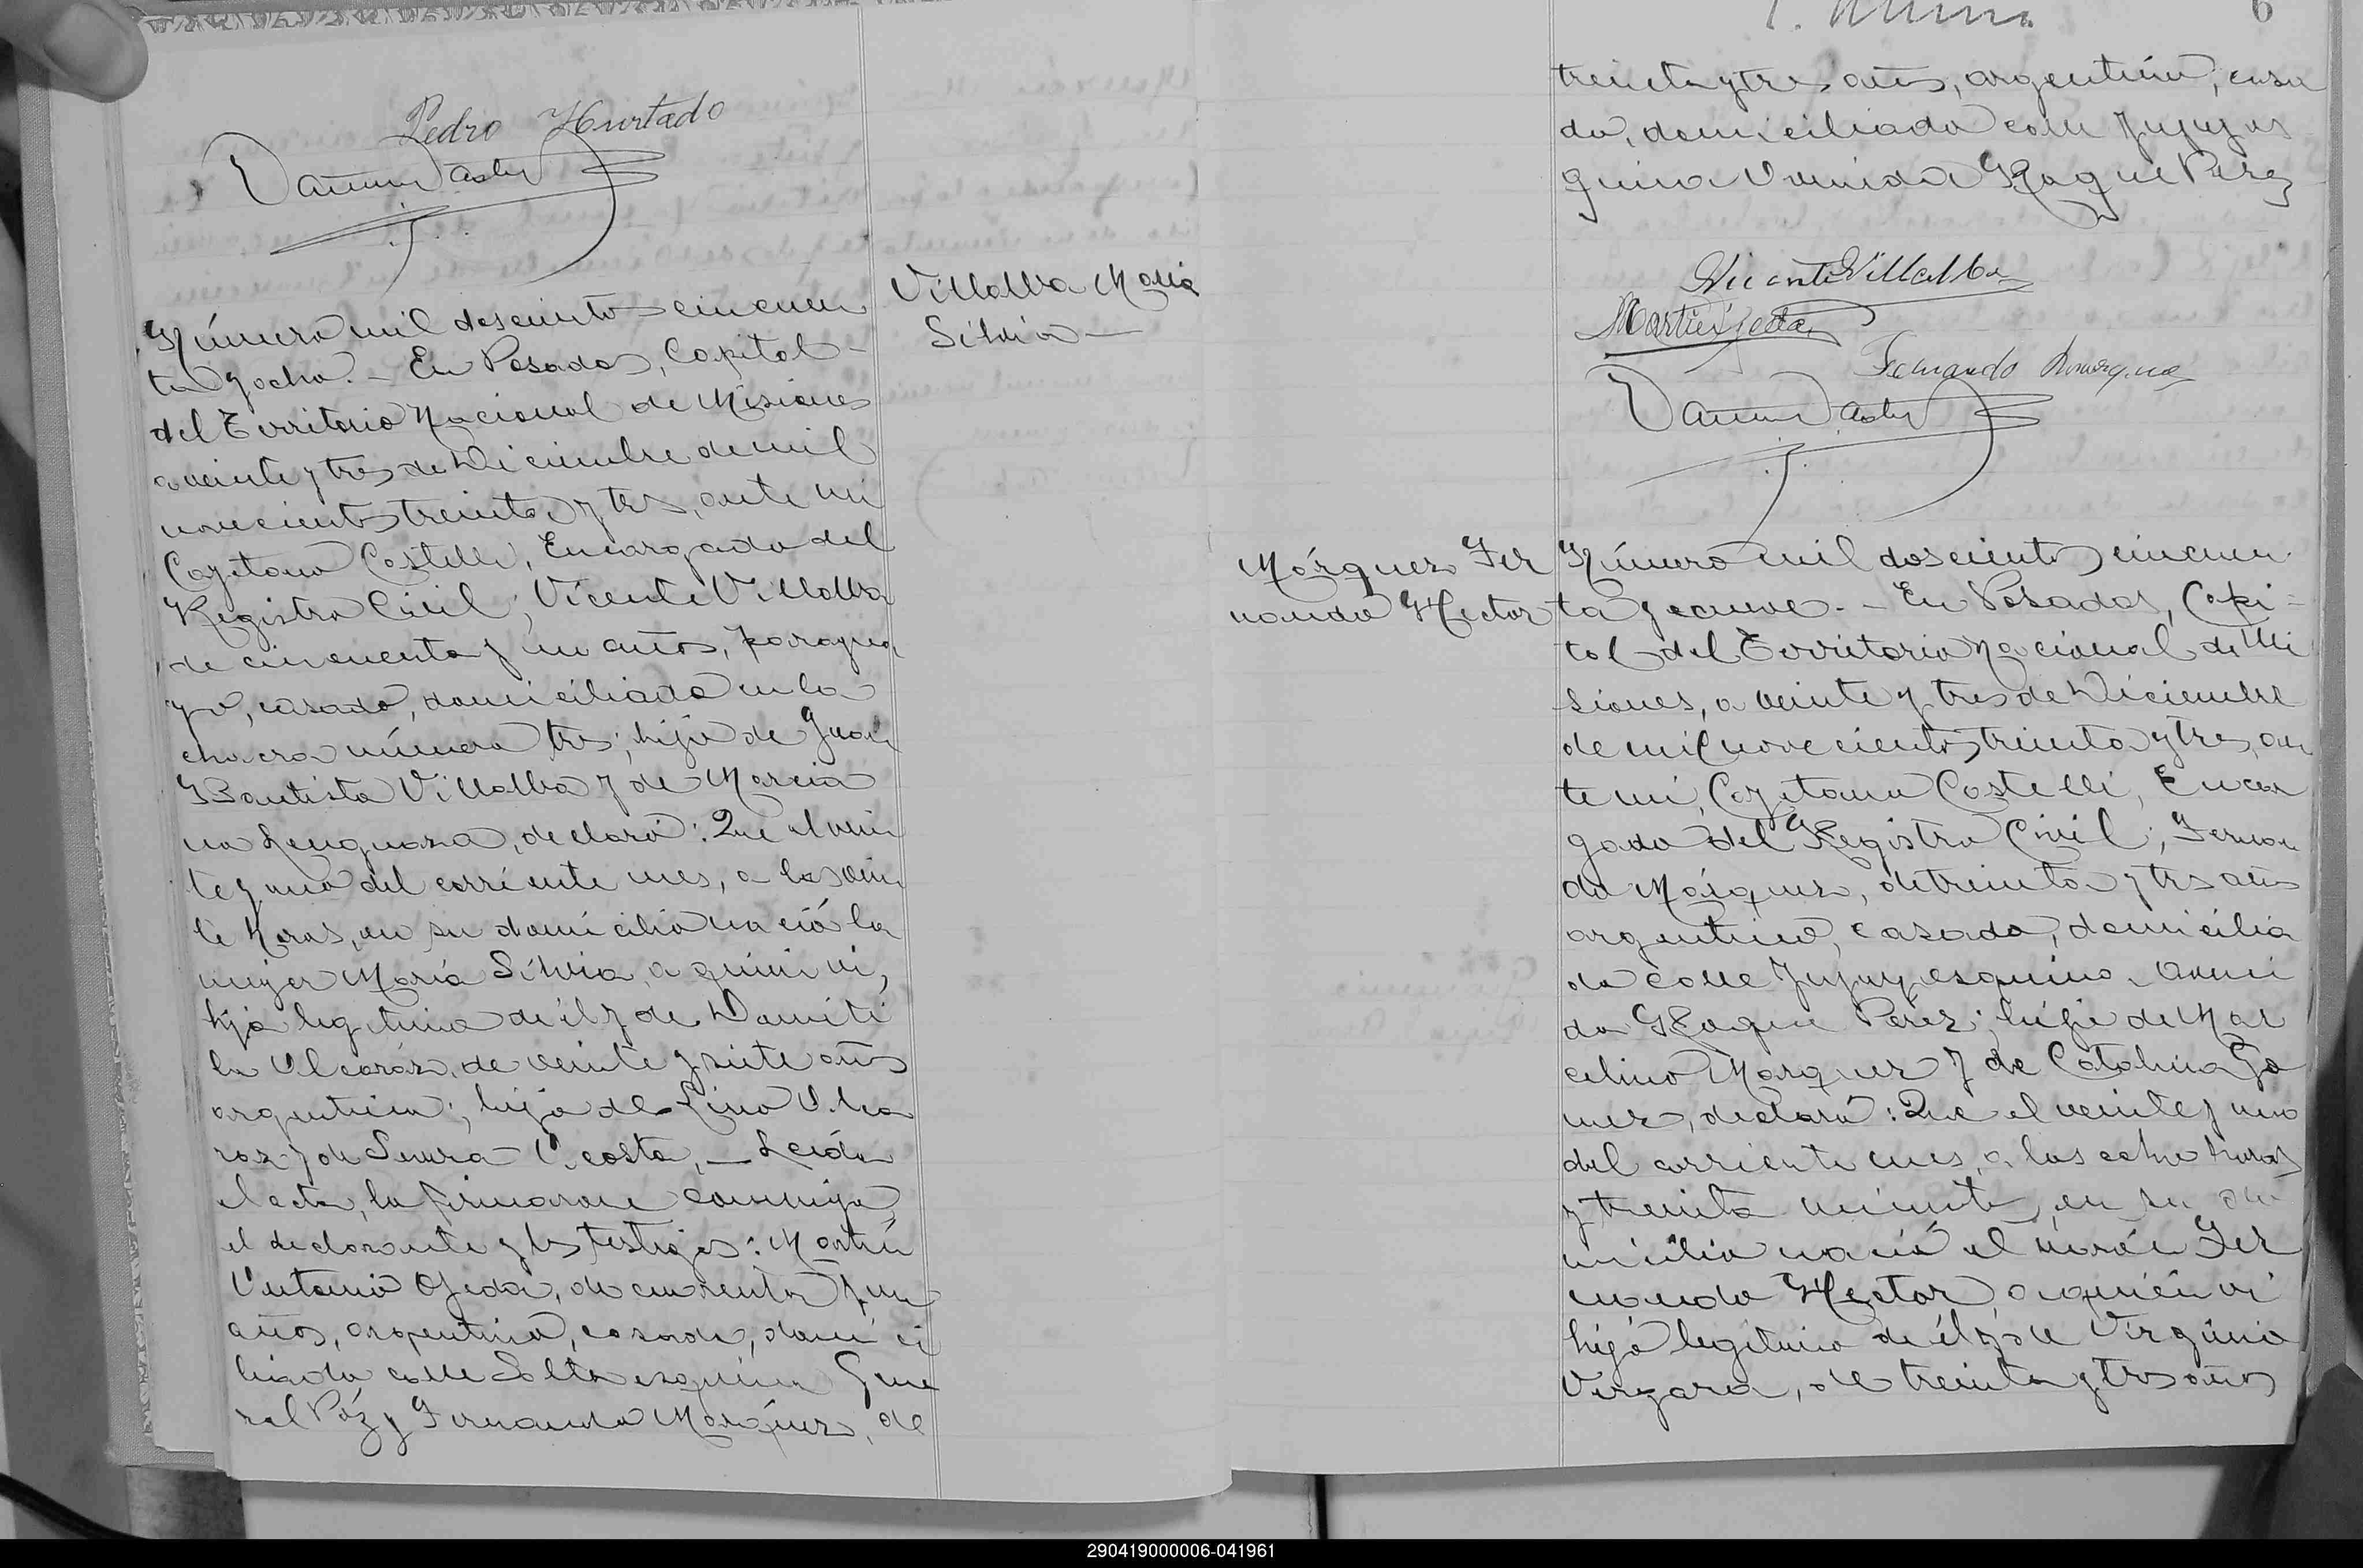 Pedro Hurtado
Número mil doscientos cincuen
ta y ocho. - En Posadas, Capital
del Territorio Nacional de Misiones
a veinte y tres de Diciembre de mil
novecientos treinta y tres, ante mi
Cayetano Castelli, Encargado del
Registro Civil; Vicente Villalba
de cincuenta y un años, paragua
yo, casado, domiciliado en la
chacra número tres; hijo de Juan
Bautista Villalba y de Marcia
na Lenguaza, declaró: Que el vein
te y uno del corriente mes, a las vein
te horas, en su domicilio nació la
mujer María Silvia, a quién ví,
hija legítima de él y de Domiti
la Alcaráz, de veinte y siete años
argentina; hija de Lino Alca
raz y de Acosta, - Leída
el acta, la firmaron conmigo
el declarante y los testigos: Martín
Antonio Ojeda, de cuarenta y un
años, argentino, casado, domici
liado calle Salta esquina Gene
ral Páz y Fernando Márquez, de
Villalba María
Silvia -
6
treinta y tres años, argentino, casa
do, domiciliado calle Jujuy es
quina Avenida Roque Pérez
Vicente Villalba
Martin Ojeda
Fernando Marquez
Márquez Fer
nando Hector
Número mil doscientos cincuen
ta y nueve. - En Posadas, Capi=
tal del Territorio Nacional de Mi
siones, a veinte y tres de Diciembre
de mil novecientos treinta y tres, an
te mi, Cayetano Castelli, Encar
gado del Registro Civil; Fernan
do Márquez, de treinta y tres años
argentino, casado, domicilia
do calle Jujuy esquina Aveni
da Roque Pérez; hijo de Mar
celino Marquez y de Catalina Go
mez, declaró: Que el veinte y uno
del corriente mes, a las ocho horas
y treinta minutos, en su do
micilio nació el varón Fer
nando Hector, a quién ví
hijo legítimo de él y de Virginia
Vergara, de treinta y tres años
290419000006-041961